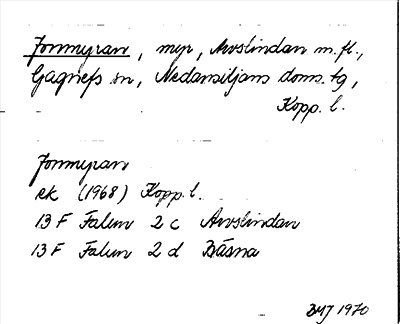 Jonmyran, myr, Arvslindan m.fl.,
Gagnefs sn, Nedansiljans doms. tg,
Kopp. l.
Jonmyran
ek (1968) Kopp. l.
13 F Falun 2 c Arvslindan
13 F Falun 2 d Båsna
1970